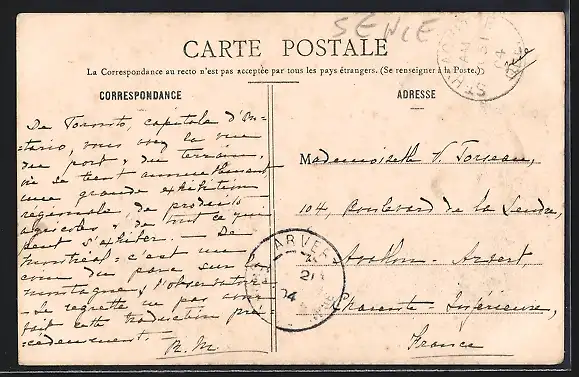 SENIE
CARTE POSTALE
La Correspondance au recto n'est pas acceptée par tous les pays étrangers. (Se renseigner à la Poste.)
CORRESPONDANCE
De Toronto, capitale d'On-
-tario, vous voyez la vue
du port & du terrain,
où se tient annuellement
une grande exhibition
régionale, de produits
agricoles & de tout ce qui
peut s'exhiber. – De
Montreal: c'est un
coin du parc sur la
montagne & l'observatoire
– Je regrette ne pas avoir
fait cette traduction pré-
-cédemment. –
R. M.
ADRESSE
Mademoiselle V. Torseau,
104, Boulevard de la Seudre,
Avallon - Arvert,
Charente Inférieure,
France
ARVERT
21
04
AM
04